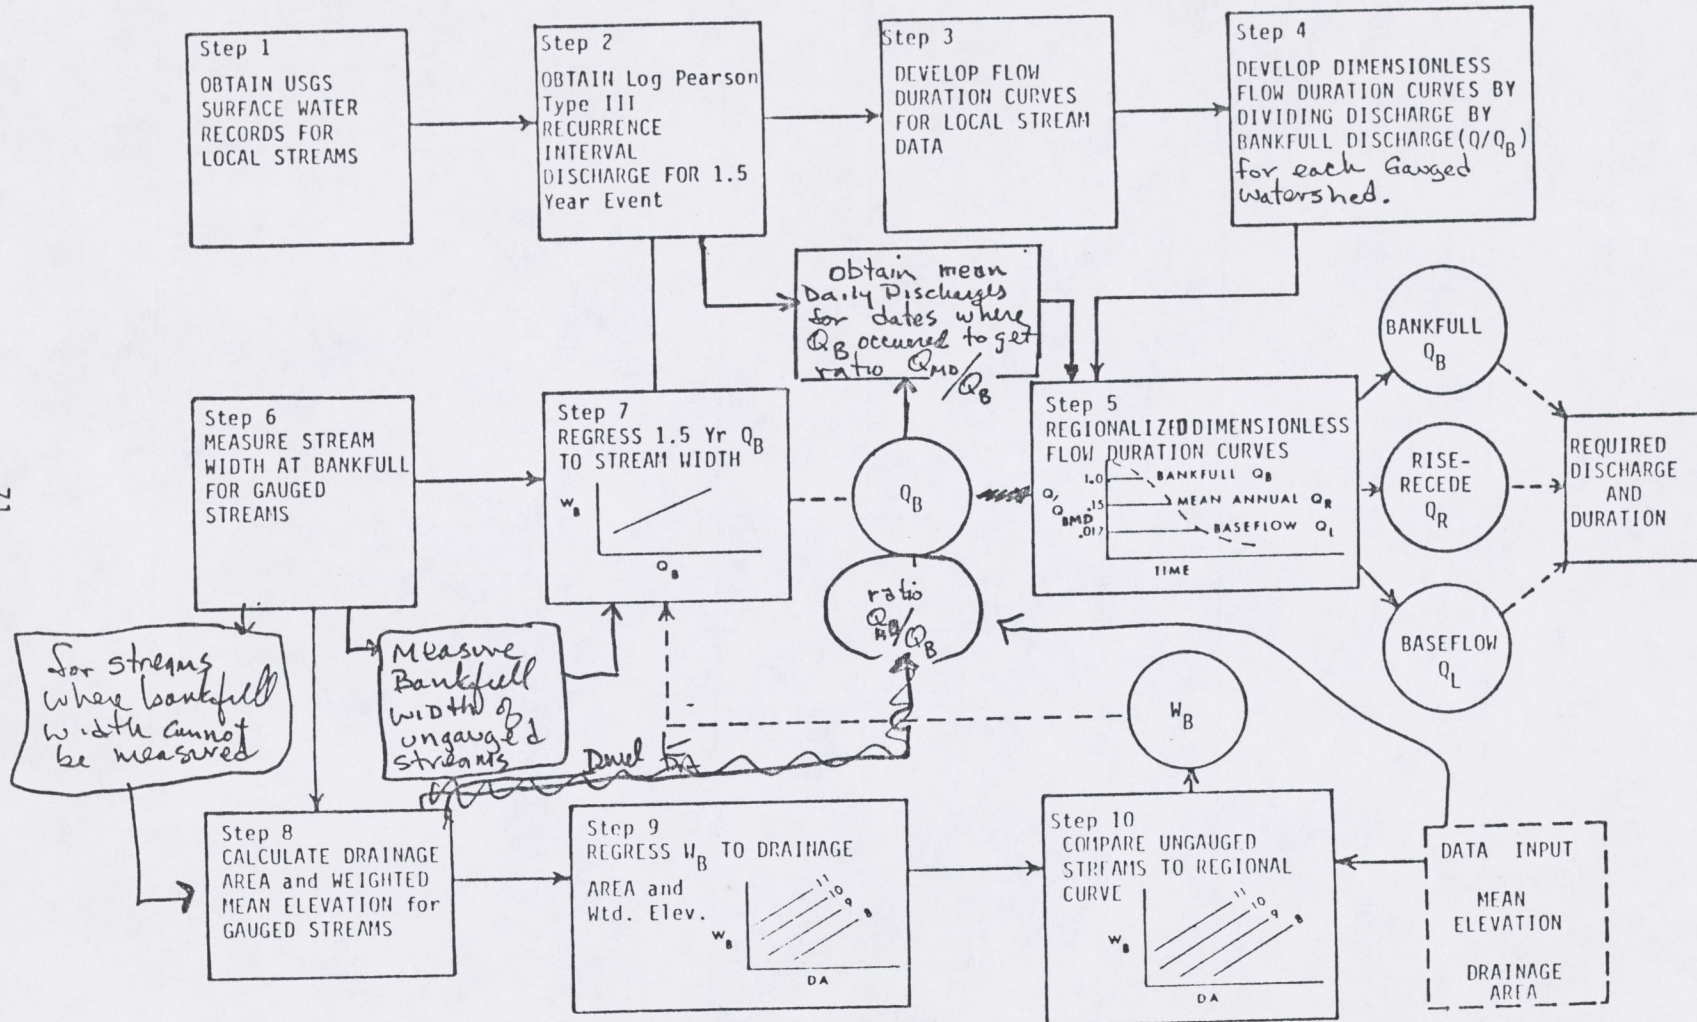 Step 1
OBTAIN USGS
SURFACE WATER
RECORDS FOR
LOCAL STREAMS
Step 2
OBTAIN Log Pearson
Type III
RECURRENCE
INTERVAL
DISCHARGE FOR 1.5
Year Event
Step 3
DEVELOP FLOW
DURATION CURVES
FOR LOCAL STREAM
DATA
Step 4
DEVELOP DIMENSIONLESS
FLOW DURATION CURVES BY
DIVIDING DISCHARGE BY
BANKFULL DISCHARGE(Q/QB)
for each Gauged
watershed.
obtain mean
Daily Discharges
for dates where
QB occurred to get
ratio QMD/QB
BANKFULL
QB
Step 6
MEASURE STREAM
WIDTH AT BANKFULL
FOR GAUGED
STREAMS
Step 7
REGRESS 1.5 Yr QB
TO STREAM WIDTH
WB
QB
QB
Step 5
REGIONALIZED DIMENSIONLESS
FLOW DURATION CURVES
Q/QBMD
1.0
.15
.017
BANKFULL QB
MEAN ANNUAL QR
BASEFLOW QL
TIME
RISE-
RECEDE
QR
REQUIRED
DISCHARGE
AND
DURATION
21
ratio
/QB
BASEFLOW
QL
for streams
where bankfull
width cannot
be measured
Measure
Bankfull
width of
ungauged
streams
WB
Step 8
CALCULATE DRAINAGE
AREA and WEIGHTED
MEAN ELEVATION for
GAUGED STREAMS
Step 9
REGRESS WB TO DRAINAGE
AREA and
Wtd. Elev.
11
10
9
8
WB
DA
Step 10
COMPARE UNGAUGED
STREAMS TO REGIONAL
CURVE
11
10
9
8
WB
DA
DATA INPUT
MEAN
ELEVATION
DRAINAGE
AREA